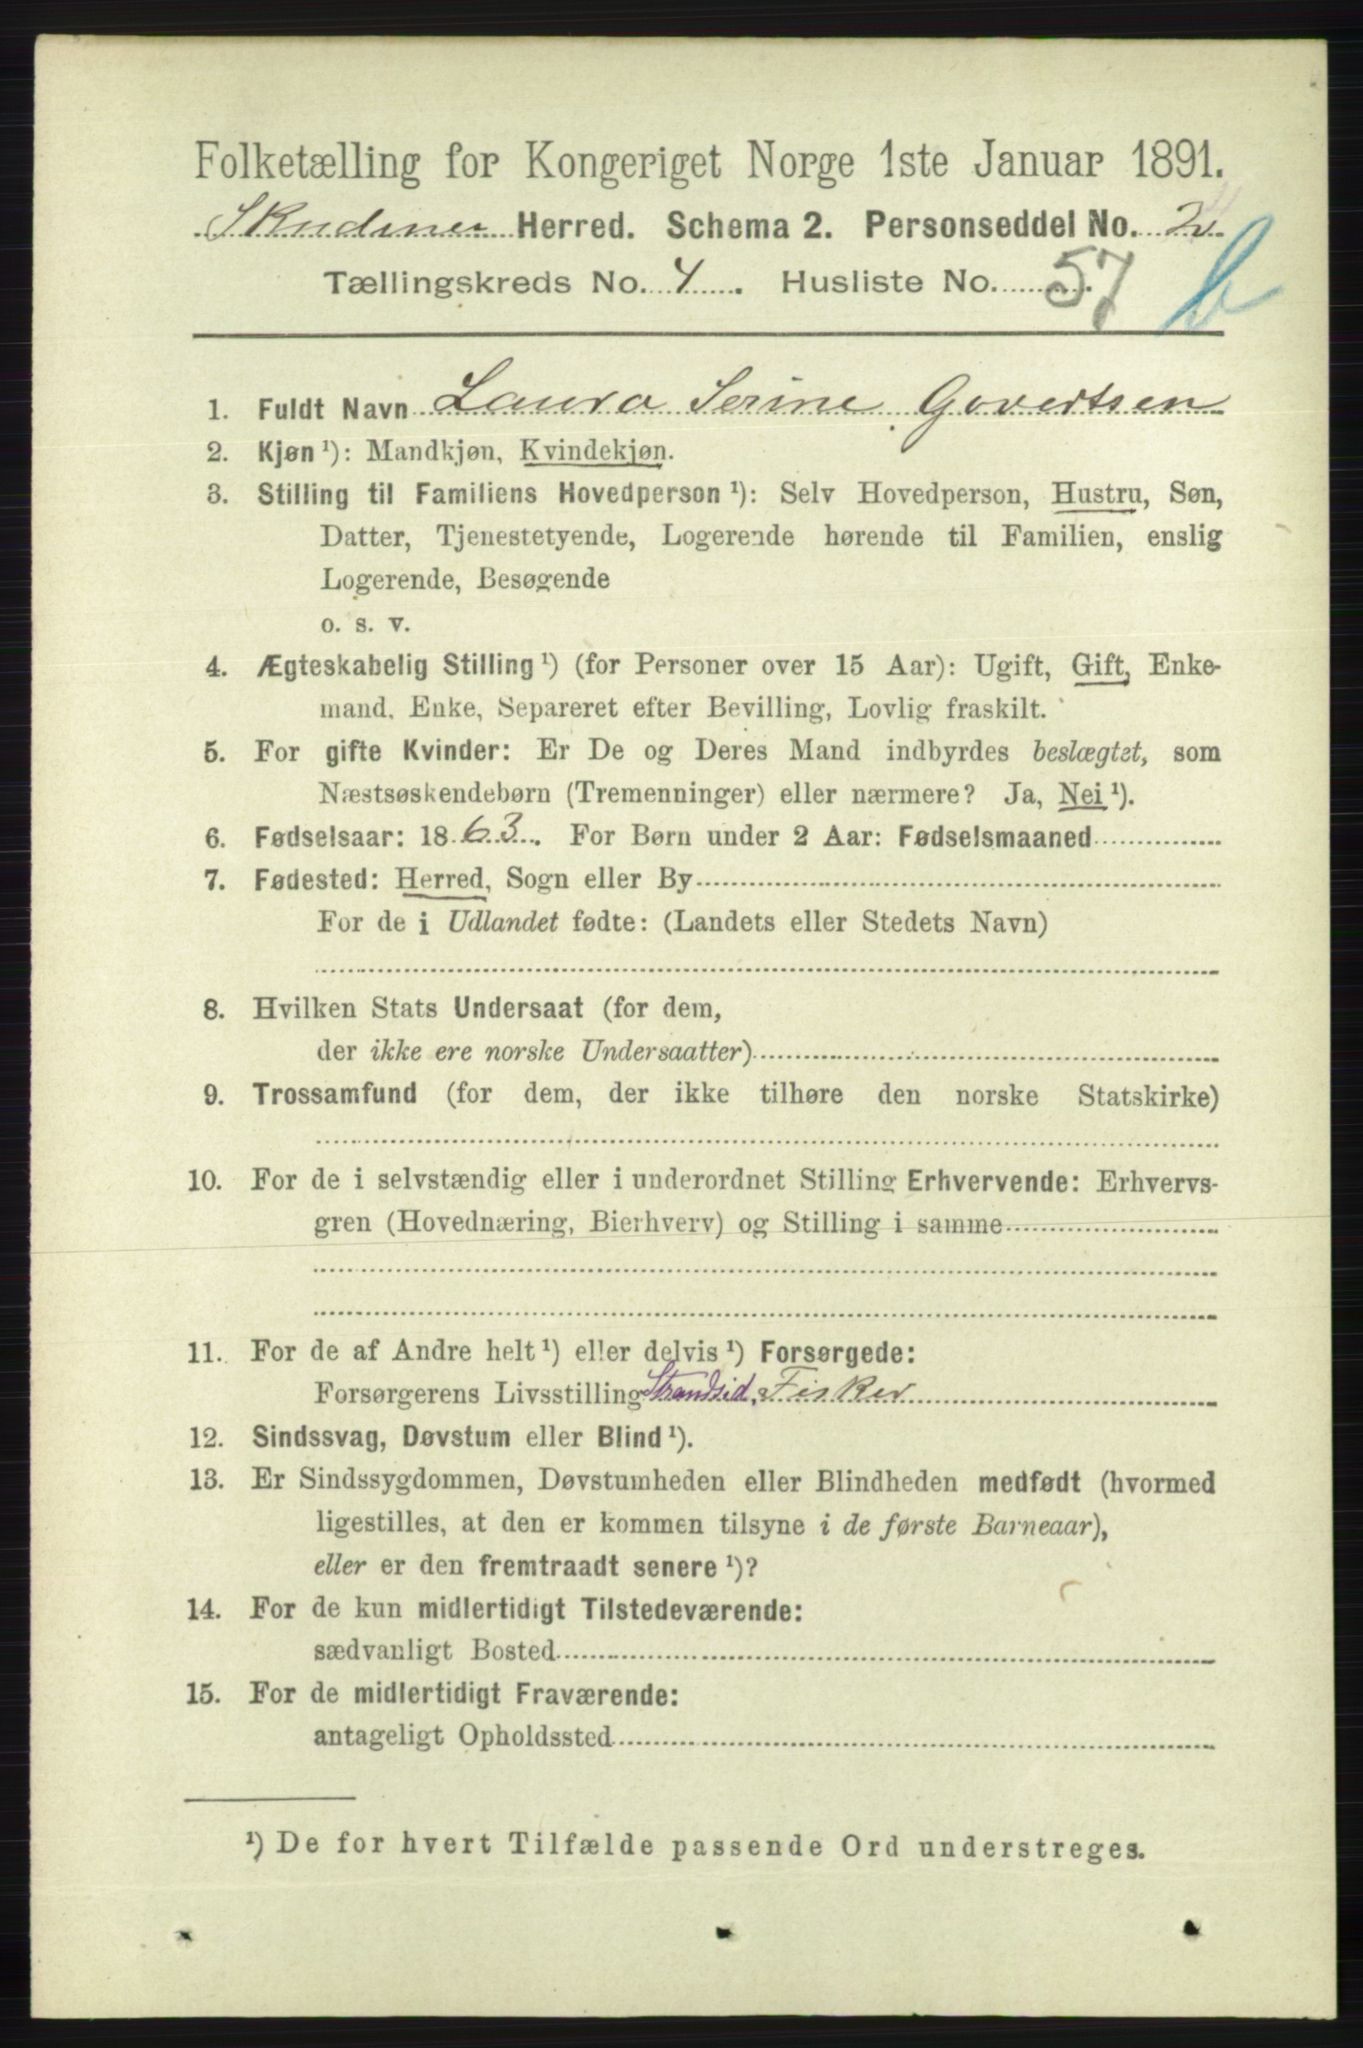 Folketælling for Kongeriget Norge 1ste Januar 1891.
Skudenes Herred. Schema 2. Personseddel No. 2
Tællingskreds No. 4. Husliste No. 57 b
1. Fuldt Navn Laura Serine Govertsen
2. Kjøn ¹): Mandkjøn, Kvindekjøn.
3. Stilling til Familiens Hovedperson ¹): Selv Hovedperson, Hustru, Søn,
Datter, Tjenestetyende, Logerende hørende til Familien, enslig
Logerende, Besøgende
o. s. v.
4. Ægteskabelig Stilling ¹) (for Personer over 15 Aar): Ugift, Gift, Enke-
mand, Enke, Separeret efter Bevilling, Lovlig fraskilt.
5. For gifte Kvinder: Er De og Deres Mand indbyrdes beslægtet, som
Næstsøskendebørn (Tremenninger) eller nærmere? Ja, Nei ¹).
6. Fødselsaar: 1863. For Børn under 2 Aar: Fødselsmaaned
7. Fødested: Herred, Sogn eller By
For de i Udlandet fødte: (Landets eller Stedets Navn)
8. Hvilken Stats Undersaat (for dem,
der ikke ere norske Undersaatter)
9. Trossamfund (for dem, der ikke tilhøre den norske Statskirke)
10. For de i selvstændig eller i underordnet Stilling Erhvervende: Erhvervs-
gren (Hovednæring, Bierhverv) og Stilling i samme
11. For de af Andre helt ¹) eller delvis ¹) Forsørgede:
Forsørgerens Livsstilling Strandsid, Fisker
12. Sindssvag, Døvstum eller Blind ¹).
13. Er Sindssygdommen, Døvstumheden eller Blindheden medfødt (hvormed
ligestilles, at den er kommen tilsyne i de første Barneaar),
eller er den fremtraadt senere ¹)?
14. For de kun midlertidigt Tilstedeværende:
sædvanligt Bosted
15. For de midlertidigt Fraværende:
antageligt Opholdssted
¹) De for hvert Tilfælde passende Ord understreges.